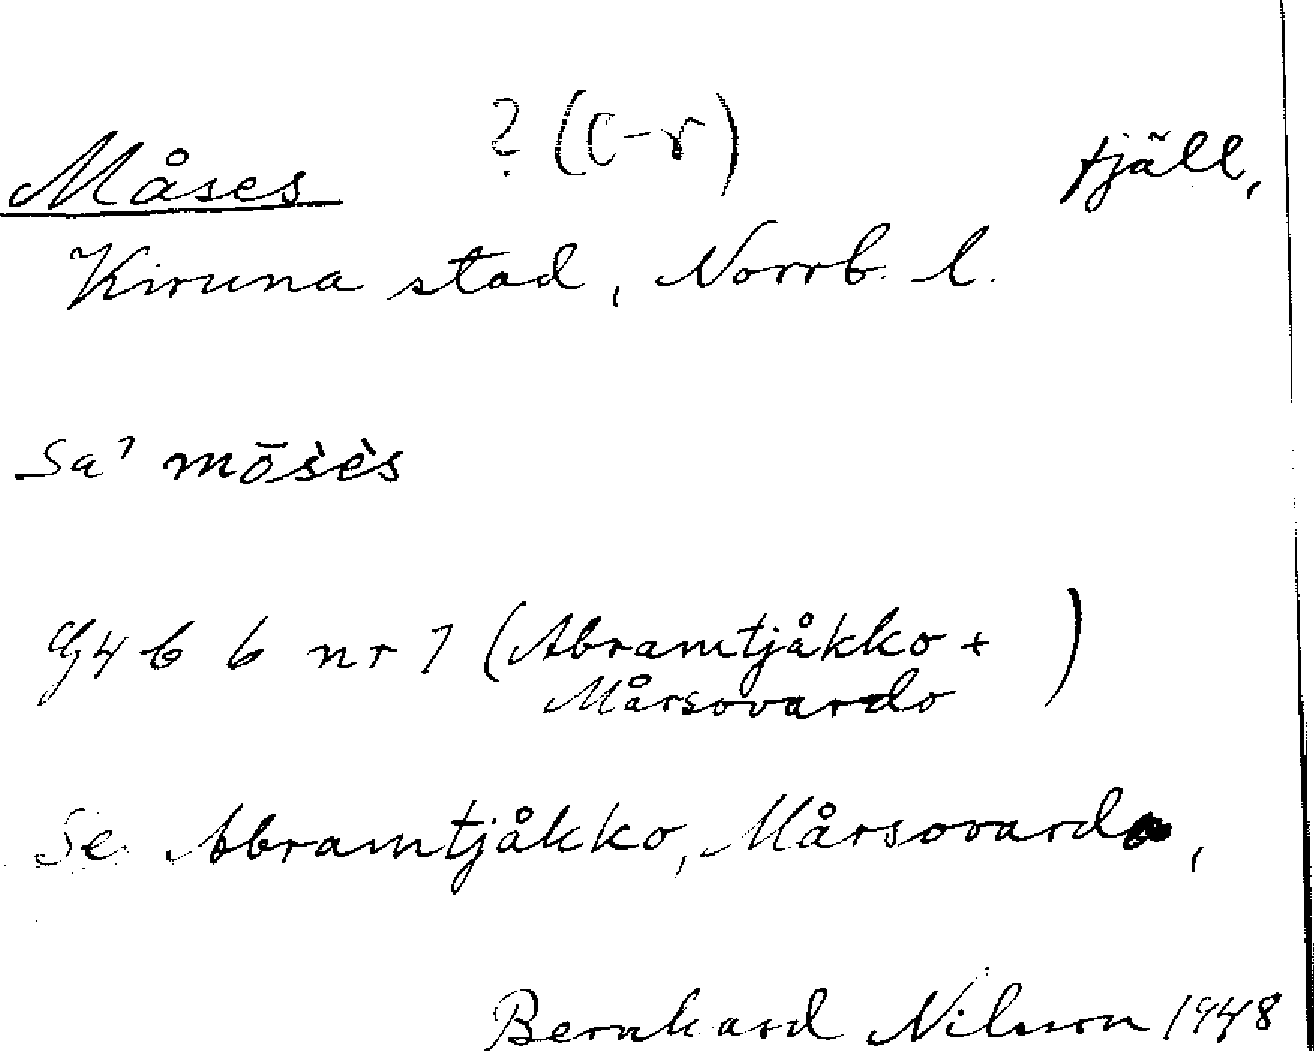 Måses ? (c-r) fjäll,
Kiruna stad, Norrb. l.
Sa' mōsès
G4 b 6 nr 1 (Abramtjåkko +
Mårsovardo)
Se Abramtjåkko, Mårsovardo,
Bernhard Nilsson 1948